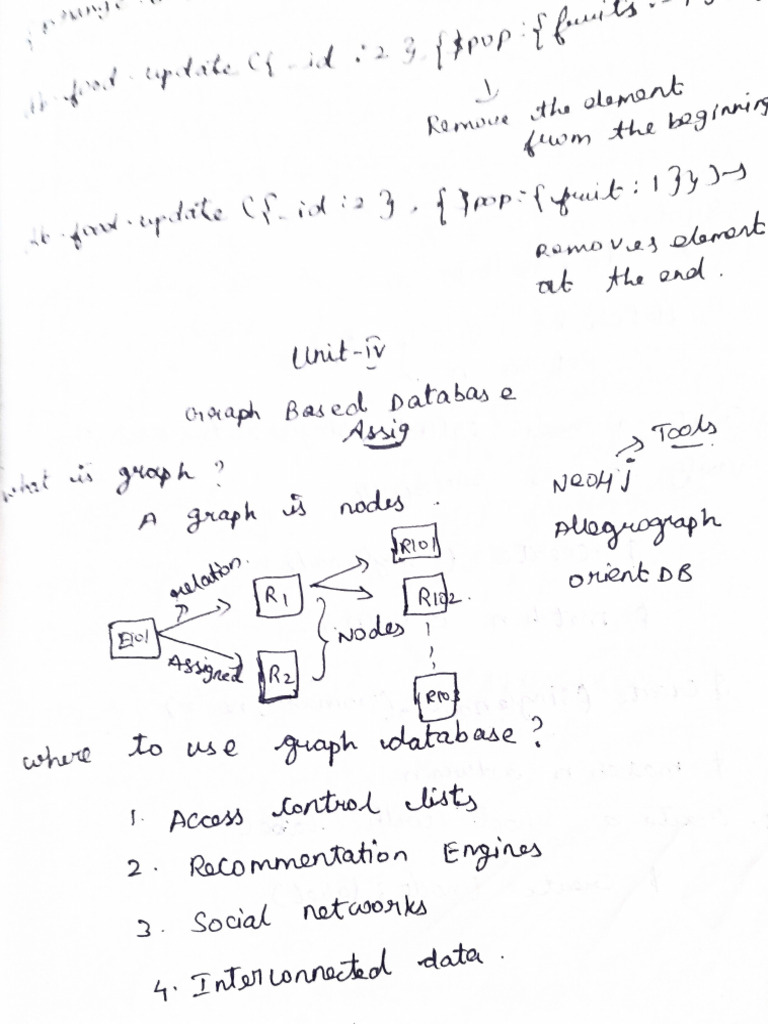 db.food.update ({_id : 2 }, {$pop : { fruits : -1
Remove the element
from the beginning
db.food.update ({_id : 2 }, {$pop : { fruit : 1 }})→
Removes element
at the end.
Unit-iv
Graph Based Database
Assig
What is graph ?
A graph is nodes.
Tools
Neo4j
Allegrograph
Orient DB
relation.
E101
Assigned
R1
R2
Nodes
R101
R102.
R103
where to use graph database?
1. Access control lists
2. Recommentation Engines
3. Social networks
4. Interconnected data.